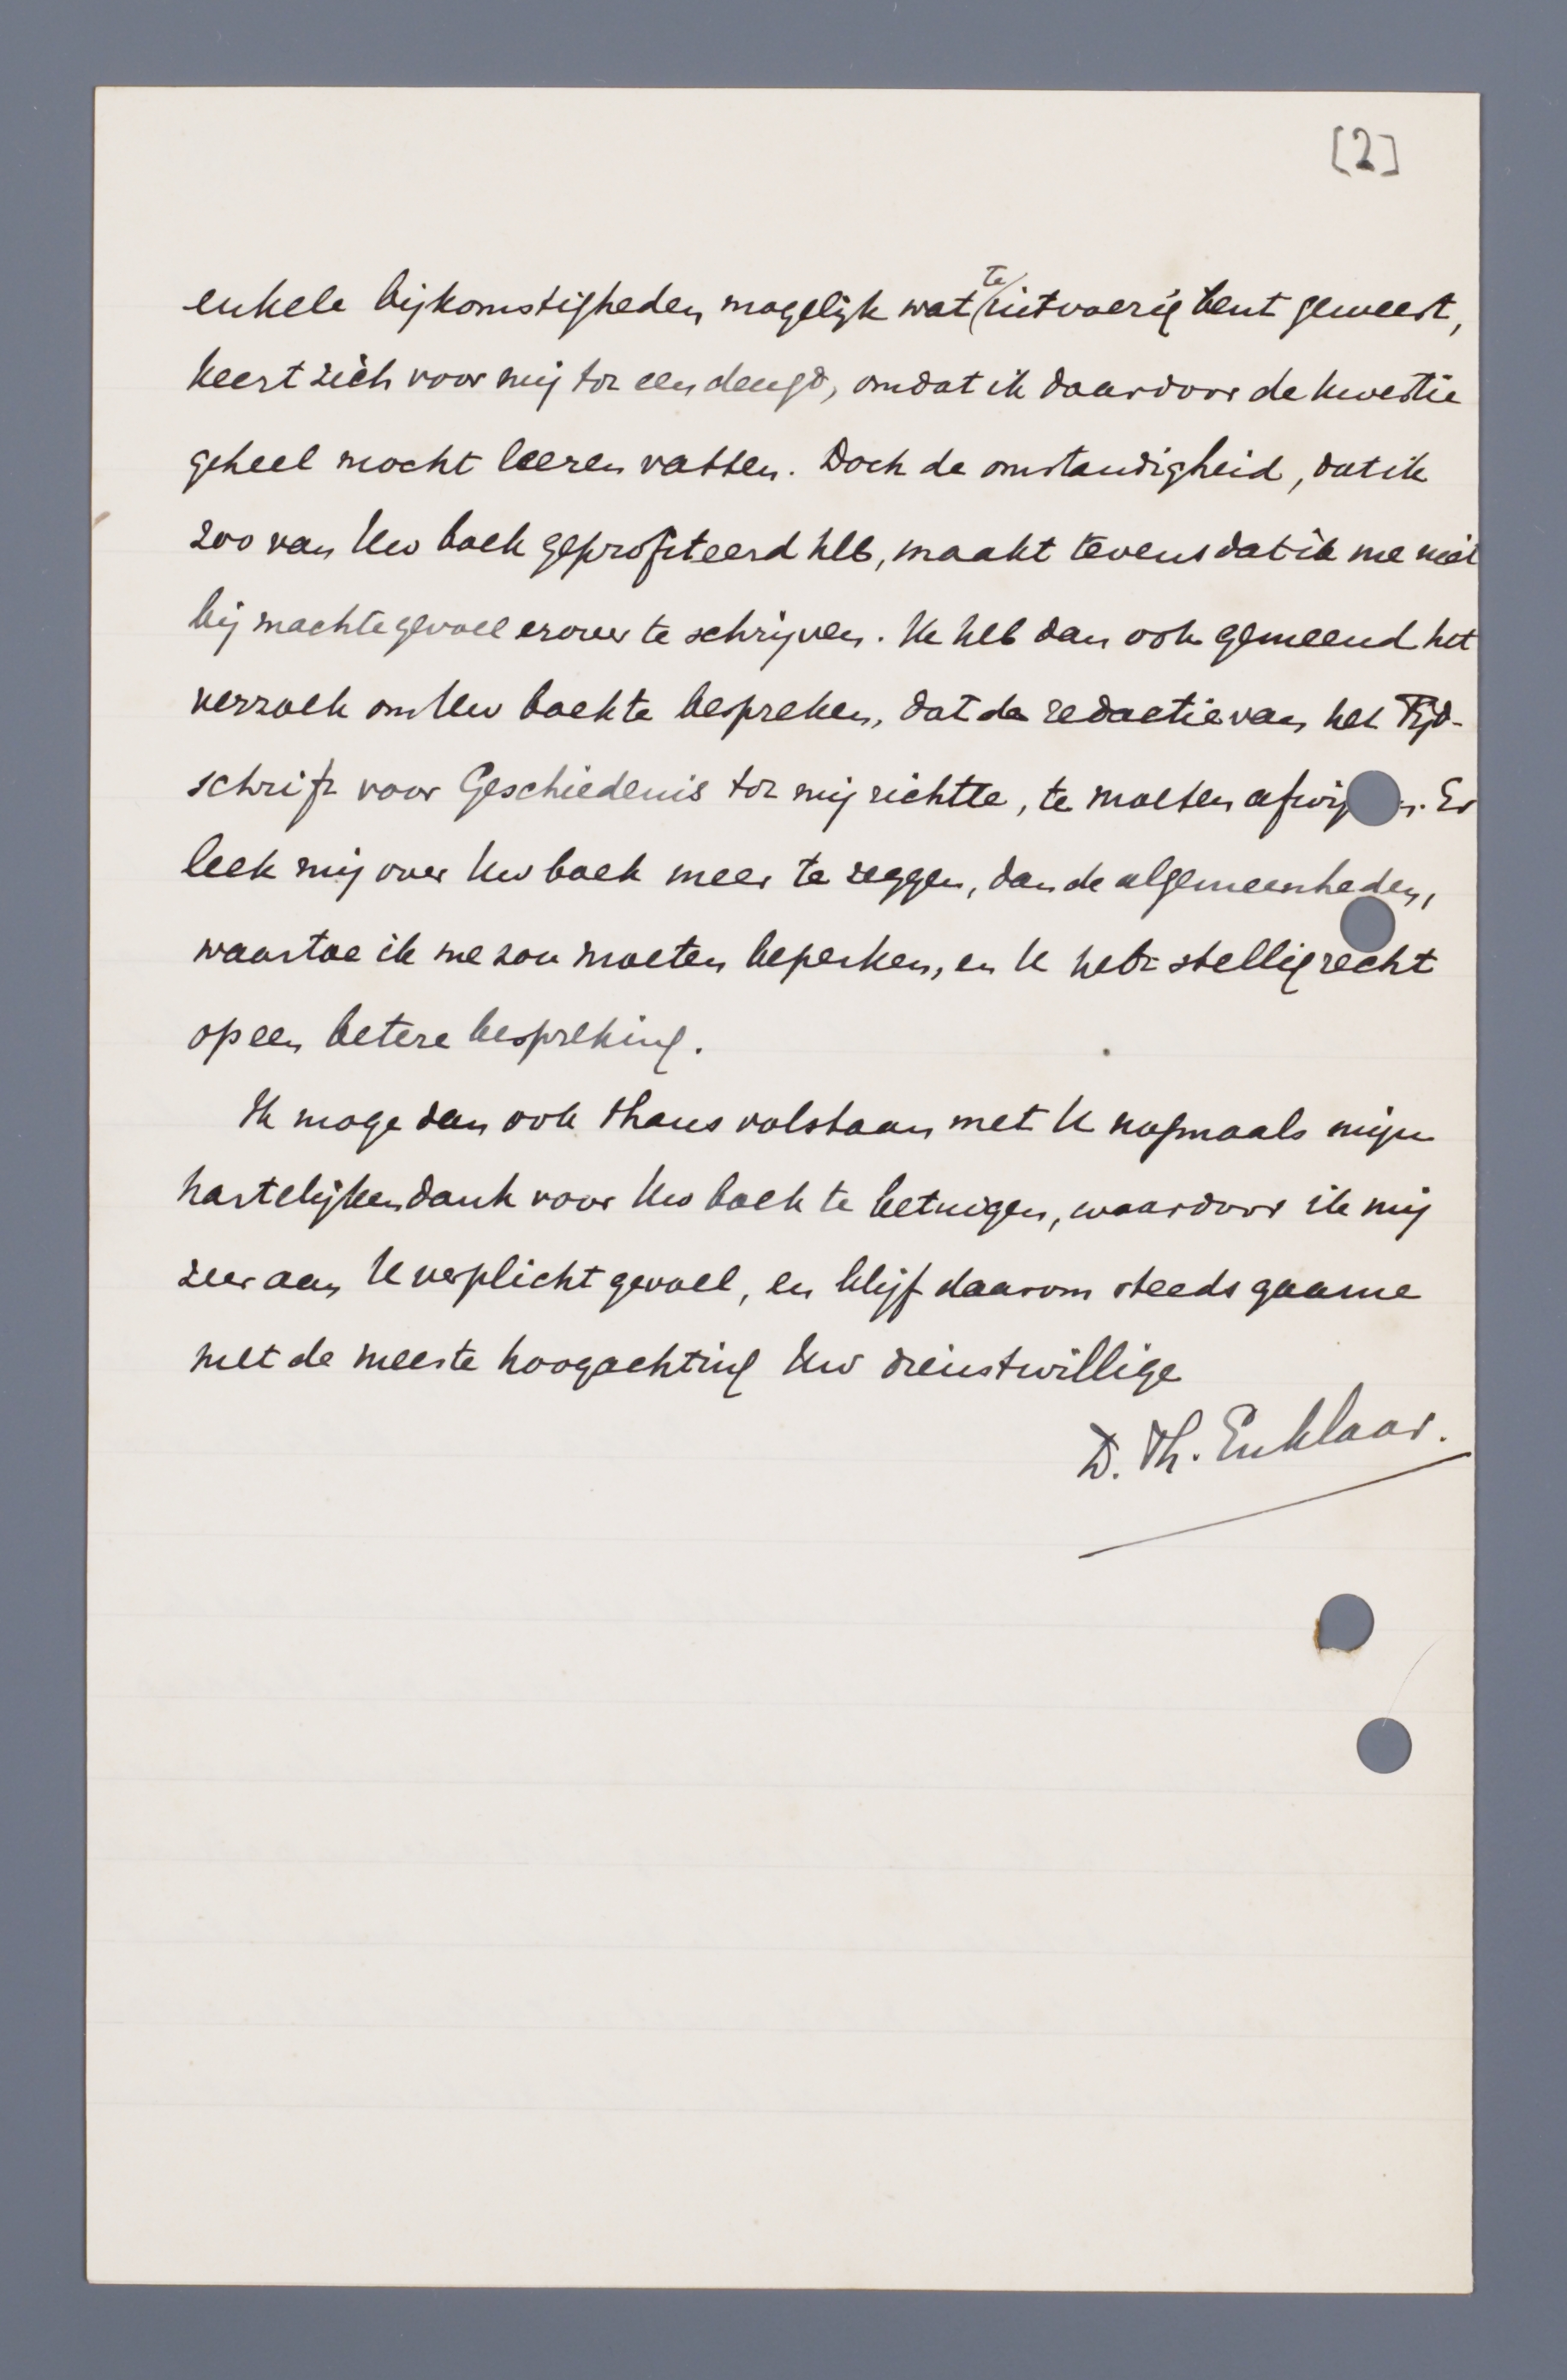 [2]
enkele bijkomstigheden mogelijk wat te uitvoerig bent geweest,
keert zich voor mij tot een deugd, omdat ik daardoor de kwestie
geheel mocht leeren vatten. Doch de omstandigheid, dat ik
zoo van Uw boek geprofiteerd heb, maakt tevens dat ik me niet
bij machte gevoel erover te schrijven. Ik heb dan ook gemeend het
verzoek om Uw boek te bespreken, dat de redactie van het Tijd-
schrift voor Geschiedenis tot mij richtte, te moeten afwij n. Er
leek mij over Uw boek meer te zeggen, dan de algemeenheden,
waartoe ik me zou moeten beperken, en U hebt stellig recht
op een betere bespreking.
Ik moge dan ook thans volstaan met U nogmaals mijn
hartelijken dank voor Uw boek te betuigen, waardoor ik mij
zeer aan U verplicht gevoel, en blijf daarom steeds gaarne
met de meeste hoogachting Uw dienstwillige
D. Th. Enklaar.